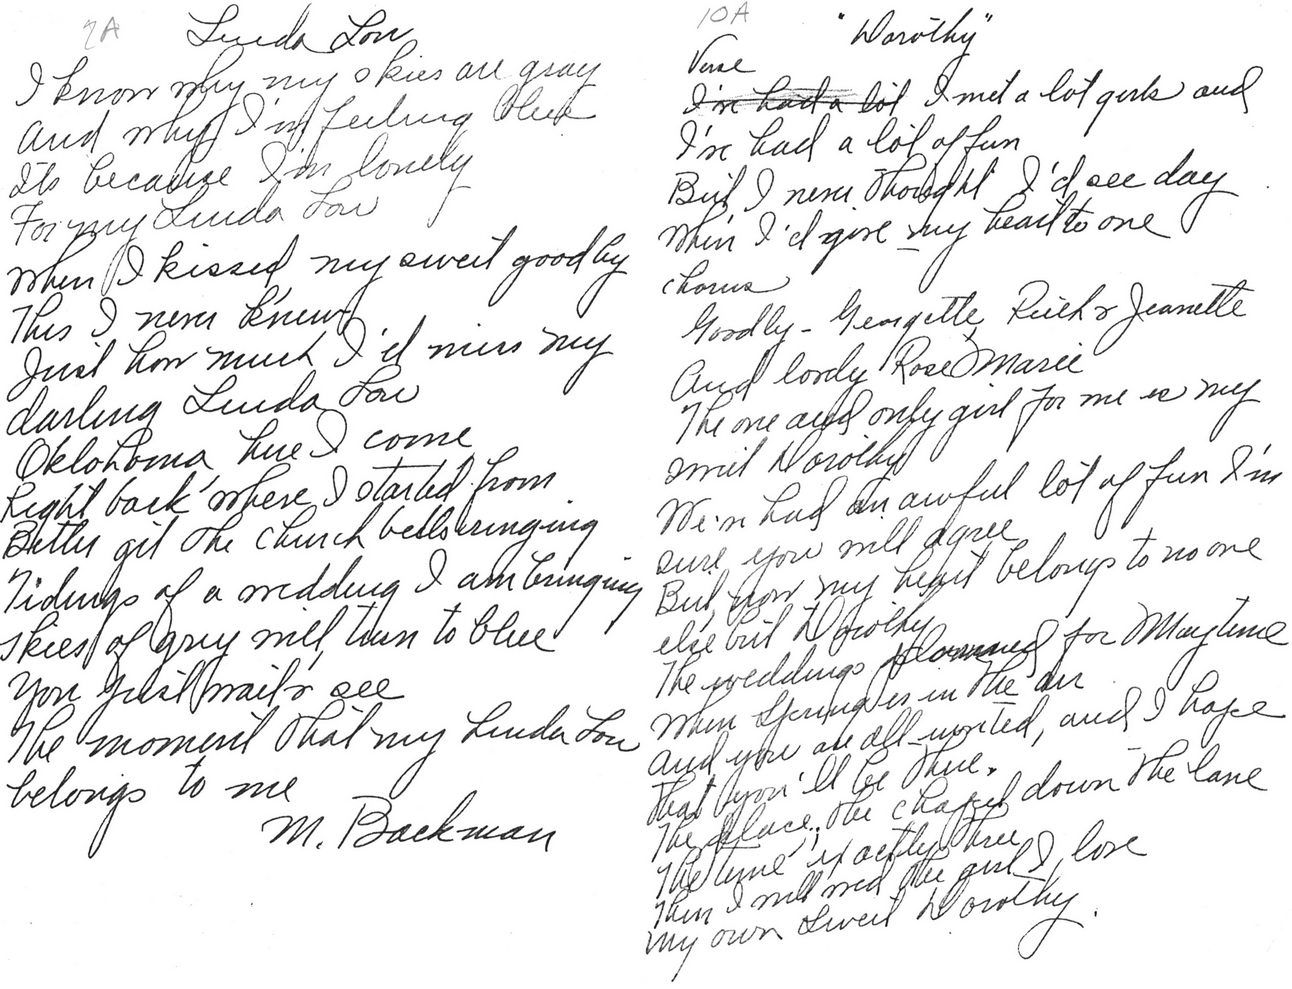 2A
Linda Lou
I know why my skies are gray
and why I'm feeling blue
Its because I'm lonely
For my Linda Lou
When I kissed my sweet goodby
This I never knew
Just how much I'd miss my
darling Linda Lou
Oklohoma here I come
Right back where I started from
Better get the church bells ringing
Tidings of a wedding I am bringing
skies of grey will turn to blue
You just wait & see
The moment that my Linda Lou
belongs to me
M. Backman
10A
"Dorothy"
Verse
I've had a lot I met a lot girls and
I've had a lot of fun
But I never thought I'd see day
When I'd give my heart to one
chorus
Goodby - Georgette, Ruth & Jeanette
And lovely Rose Marie
The one and only girl for me is my
sweet Dorothy
We've had an awful lot of fun I'm
sure you will agree
But now my heart belongs to no one
else but Dorothy
The weddings planned for Maytime
When Spring is in the air
and you are all invited, and I hope
that you'll be there.
The place, the chapel down the lane
The time exactly three
Then I will wed the girl I love
My own Sweet Dorothy.